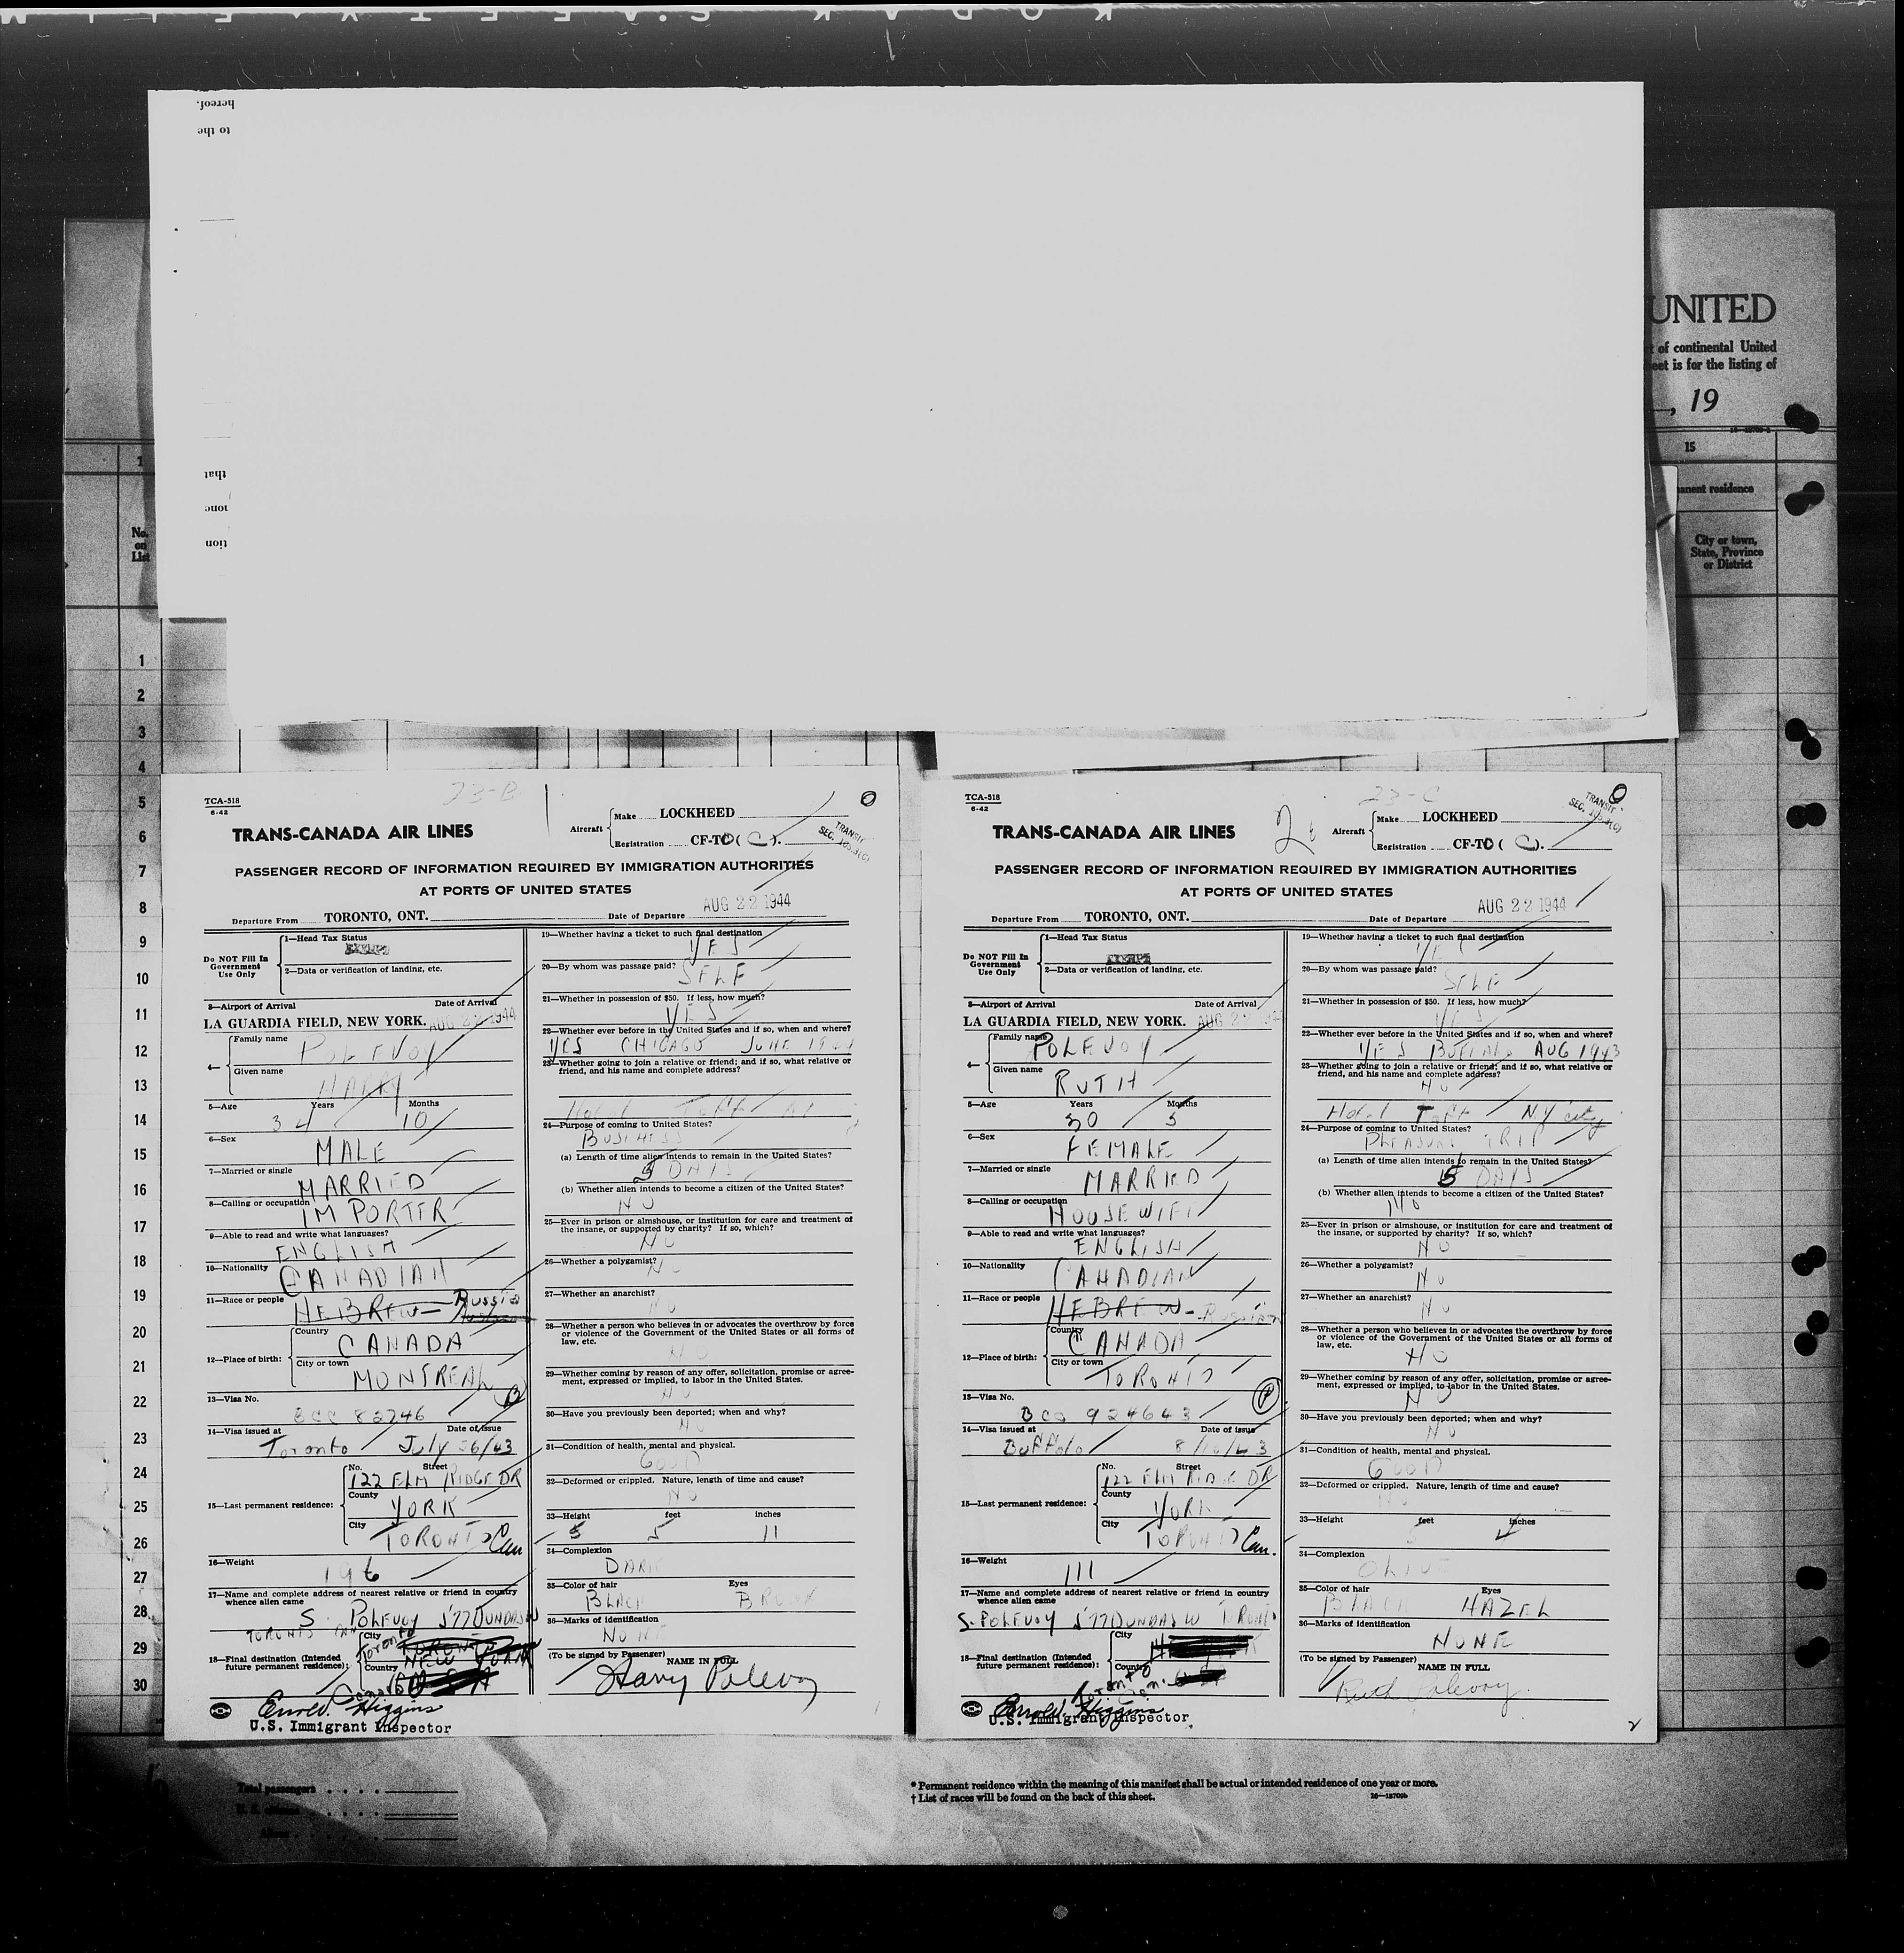 KODAK SAFETY FILM
hereof.
to the
that
none
tion
UNITED
of continental United
eet is for the listing of
, 19
15
anent residence
No.
on
List
City or town,
State, Province
or District
1
2
3
4
5
6
7
8
9
10
11
12
13
14
15
16
17
18
19
20
21
22
23
24
25
26
27
28
29
30
23-B
TCA-518
6-42
TRANS-CANADA AIR LINES
Aircraft
Make LOCKHEED
Registration CF-TC (C).
TRANSIT
PASSENGER RECORD OF INFORMATION REQUIRED BY IMMIGRATION AUTHORITIES
AT PORTS OF UNITED STATES
Departure From TORONTO, ONT. Date of Departure AUG 22 1944
Do NOT Fill In
Government
Use Only
1—Head Tax Status
EXEMPT
2—Data or verification of landing, etc.
3—Airport of Arrival Date of Arrival
LA GUARDIA FIELD, NEW YORK. AUG 22 1944
4—
Family name
POLEVOY
Given name
HARRY
5—Age Years Months
34 10
6—Sex
MALE
7—Married or single
MARRIED
8—Calling or occupation
IMPORTER
9—Able to read and write what languages?
ENGLISH
10—Nationality
CANADIAN
11—Race or people
HEBREW- Russia
12—Place of birth:
Country
CANADA
City or town
MONTREAL
13—Visa No.
BCC 82746
14—Visa issued at Date of issue
Toronto July 26/43
15—Last permanent residence:
No. Street
122 ELM RIDGE DR
County
YORK
City
TORONTO Can
16—Weight
196
17—Name and complete address of nearest relative or friend in country
whence alien came
S. POLEVOY 577 DUNDAS W
TORONTO CAN
18—Final destination (Intended
future permanent residence):
City
Toronto
NEW YORK
Country
Canada
Errol. Higgins
U.S. Immigrant Inspector
19—Whether having a ticket to such final destination
YES
20—By whom was passage paid?
SELF
21—Whether in possession of $50. If less, how much?
YES
22—Whether ever before in the United States and if so, when and where?
YES CHICAGO JUNE 1944
23—Whether going to join a relative or friend; and if so, what relative or
friend, and his name and complete address?
Hotel Taft
24—Purpose of coming to United States?
BUSINESS
(a) Length of time alien intends to remain in the United States?
5 DAYS
(b) Whether alien intends to become a citizen of the United States?
NO
25—Ever in prison or almshouse, or institution for care and treatment of
the insane, or supported by charity? If so, which?
NO
26—Whether a polygamist?
NO
27—Whether an anarchist?
NO
28—Whether a person who believes in or advocates the overthrow by force
or violence of the Government of the United States or all forms of
law, etc.
NO
29—Whether coming by reason of any offer, solicitation, promise or agree-
ment, expressed or implied, to labor in the United States.
NO
30—Have you previously been deported; when and why?
NO
31—Condition of health, mental and physical.
GOOD
32—Deformed or crippled. Nature, length of time and cause?
NO
33—Height feet inches
5 11
34—Complexion
DARK
35—Color of hair Eyes
BLACK BROWN
36—Marks of identification
NONE
(To be signed by Passenger)
NAME IN FULL
Harry Polevoy
23-C
TCA-518
6-42
TRANS-CANADA AIR LINES
Aircraft
Make LOCKHEED
Registration CF-TC (C).
TRANSIT
PASSENGER RECORD OF INFORMATION REQUIRED BY IMMIGRATION AUTHORITIES
AT PORTS OF UNITED STATES
Departure From TORONTO, ONT. Date of Departure AUG 22 1944
Do NOT Fill In
Government
Use Only
1—Head Tax Status
EXEMPT
2—Data or verification of landing, etc.
3—Airport of Arrival Date of Arrival
LA GUARDIA FIELD, NEW YORK. AUG 22 1944
4—
Family name
POLEVOY
Given name
RUTH
5—Age Years Months
30 5
6—Sex
FEMALE
7—Married or single
MARRIED
8—Calling or occupation
HOUSEWIFE
9—Able to read and write what languages?
ENGLISH
10—Nationality
CANADIAN
11—Race or people
HEBREW- Russian
12—Place of birth:
Country
CANADA
City or town
TORONTO
13—Visa No.
BCC 924643
14—Visa issued at Date of issue
Buffalo 8/16/43
15—Last permanent residence:
No. Street
122 ELM RIDGE DR
County
YORK
City
TORONTO Can.
16—Weight
111
17—Name and complete address of nearest relative or friend in country
whence alien came
S. POLEVOY 577 DUNDAS W TORONTO
18—Final destination (Intended
future permanent residence):
City
Country
Toronto
Can.
Errol. Higgins
U.S. Immigrant Inspector
19—Whether having a ticket to such final destination
YES
20—By whom was passage paid?
SELF
21—Whether in possession of $50. If less, how much?
YES
22—Whether ever before in the United States and if so, when and where?
YES BUFFALO AUG 1943
23—Whether going to join a relative or friend; and if so, what relative or
friend, and his name and complete address?
NO
Hotel Taft NY city
24—Purpose of coming to United States?
PLEASURE TRIP
(a) Length of time alien intends to remain in the United States?
5 DAYS
(b) Whether alien intends to become a citizen of the United States?
NO
25—Ever in prison or almshouse, or institution for care and treatment of
the insane, or supported by charity? If so, which?
NO
26—Whether a polygamist?
NO
27—Whether an anarchist?
NO
28—Whether a person who believes in or advocates the overthrow by force
or violence of the Government of the United States or all forms of
law, etc.
NO
29—Whether coming by reason of any offer, solicitation, promise or agree-
ment, expressed or implied, to labor in the United States.
NO
30—Have you previously been deported; when and why?
NO
31—Condition of health, mental and physical.
GOOD
32—Deformed or crippled. Nature, length of time and cause?
NO
33—Height feet inches
5 4
34—Complexion
OLIVE
35—Color of hair Eyes
BLACK HAZEL
36—Marks of identification
NONE
(To be signed by Passenger)
NAME IN FULL
Ruth Polevoy.
2
Total passengers
U. S. citizens
Aliens
* Permanent residence within the meaning of this manifest shall be actual or intended residence of one year or more.
† List of races will be found on the back of this sheet.